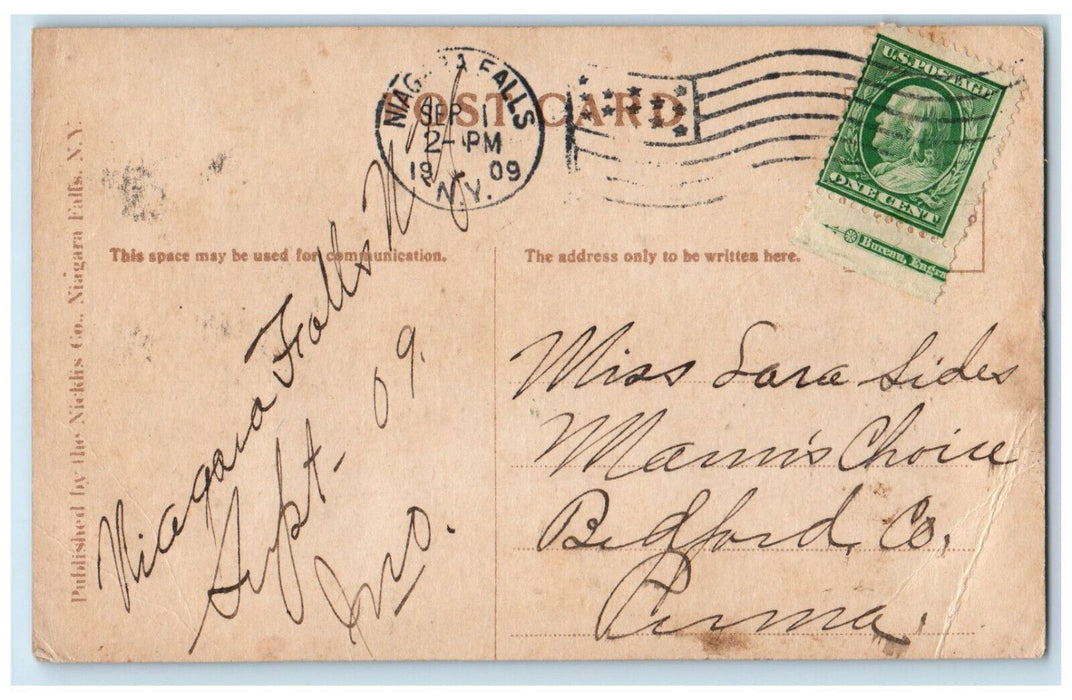 POST CARD
NIAGARA FALLS
SEP 1
2- PM
19 09
N.Y.
U.S. POSTAGE
ONE CENT
Bureau, Engra
Published by the Nicklis Co., Niagara Falls, N.Y.
This space may be used for communication.
The address only to be written here.
Niagara Falls N.Y.
Sept. 09.
Jno.
Miss Sara Sides
Mann's Choice
Bedford, Co,
Penna.